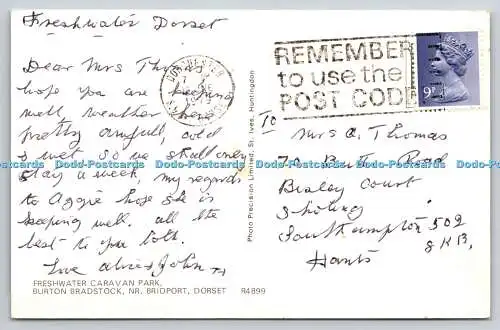 Freshwater Dorset
Dear Mrs
hope you are keeping
well, weather here
pretty awfull, cold
& wet so we shall only
stay a week, my regards
to Aggie hope she is
keeping well. all the
best to you both.
Love John
FRESHWATER CARAVAN PARK,
BURTON BRADSTOCK, NR. BRIDPORT, DORSET R4899
Photo Precision Limited, St. Ives, Huntingdon
REMEMBER
to use the
POST CODE
9P
To
Mrs A. Thomas
70 Road
Court
Sholing
Southampton SO2
8KB,
Hants
Dodo-Postcards Dodo-Postcards Dodo-Postcards Dodo-Postcards